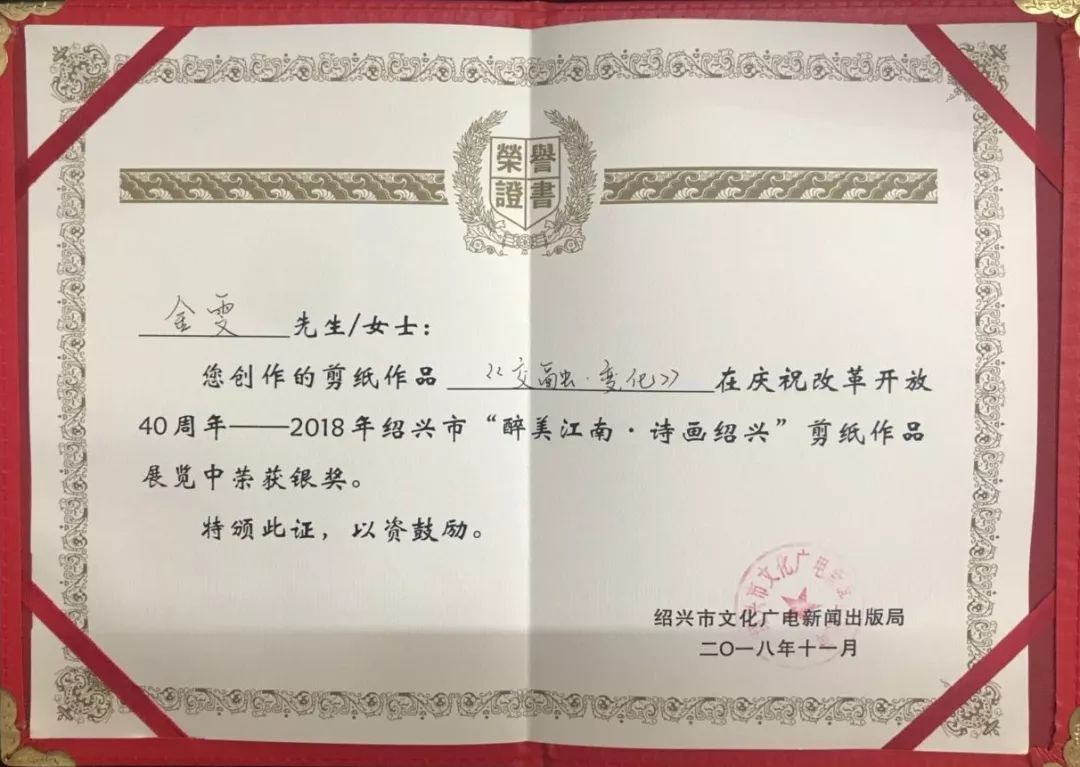 榮譽
證書
金雯 先生/女士：
您创作的剪纸作品 《交融·变化》 在庆祝改革开放
40周年——2018年绍兴市“醉美江南·诗画绍兴”剪纸作品
展览中荣获银奖。
特颁此证，以资鼓励。
绍兴市文化广电
绍兴市文化广电新闻出版局
二〇一八年十一月